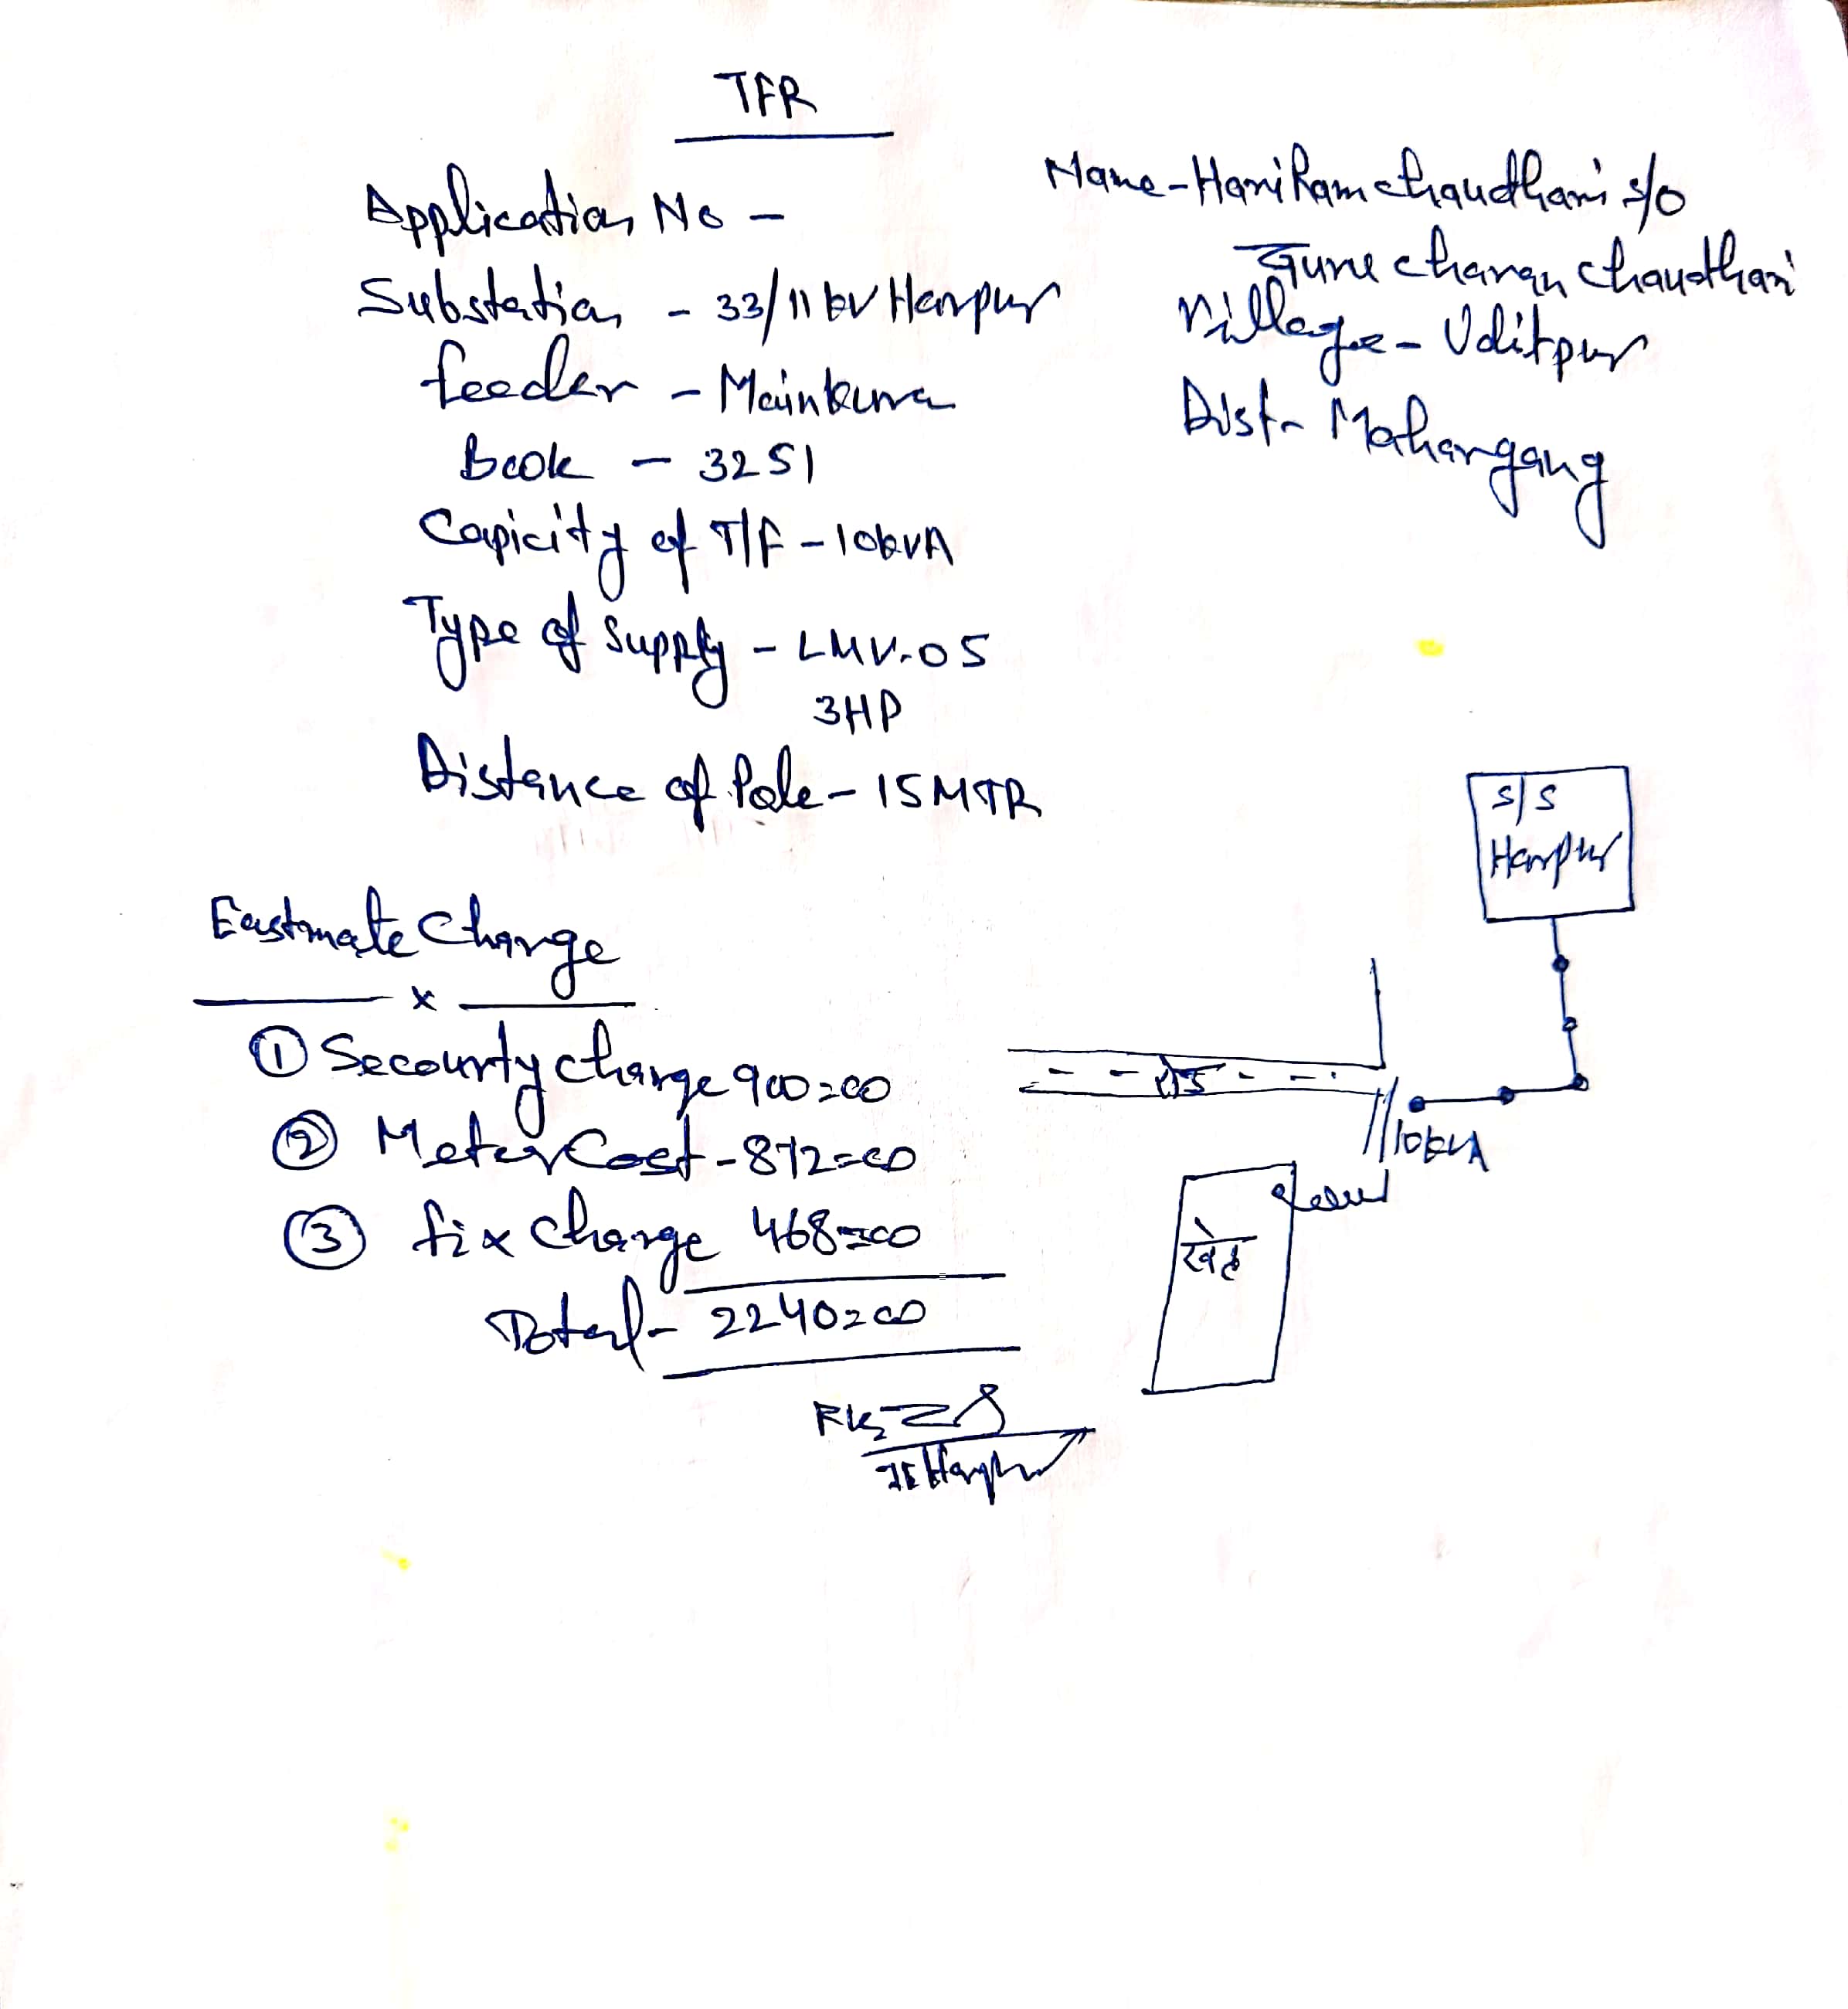 TFR
Application No -
Substation - 33/11 kv Harpur
feeder - Mainkura
Book - 3251
Capicity of T/F - 10kVA
Type of Supply - LMV-05
3HP
Distance of Pole - 15 MTR
Name - Hari Ram Chaudhari s/o
Guru Charan Chaudhari
Village - Uditpur
Dist - Mahargang
Eastmate Charge
x
① Secourty charge 900=00
② Meter Cost - 872=00
③ fix charge 468=00
Total - 2240=00
JE Harpur
S/S
Harpur
10kVA
खेत